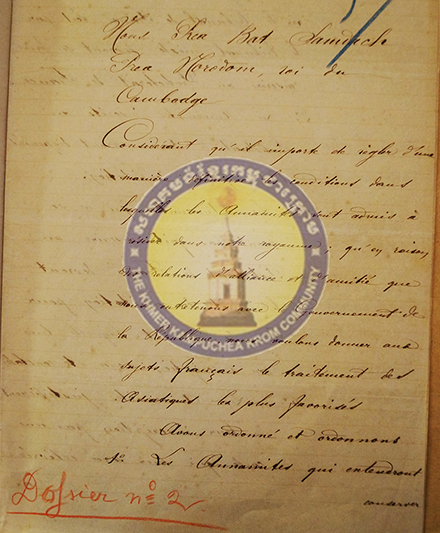 Nous Prea Bat Samdach
Prea Norodom, roi du
Cambodge
Considérant qu'il importe de régler d'une
manière définitive les conditions dans
lesquelles les Annamites sont admis à
résider dans notre royaume ; qu'en raison
des relations d'alliance et d'amitié que
nous entretenons avec le Gouvernement de
la République nous voulons donner aux
sujets français le traitement des
Asiatiques les plus favorisés
Avons ordonné et ordonnons
1º Les Annamites qui entendront
conserver
Dossier nº 2
THE KHMER KAMPUCHEA KROM COMMUNITY